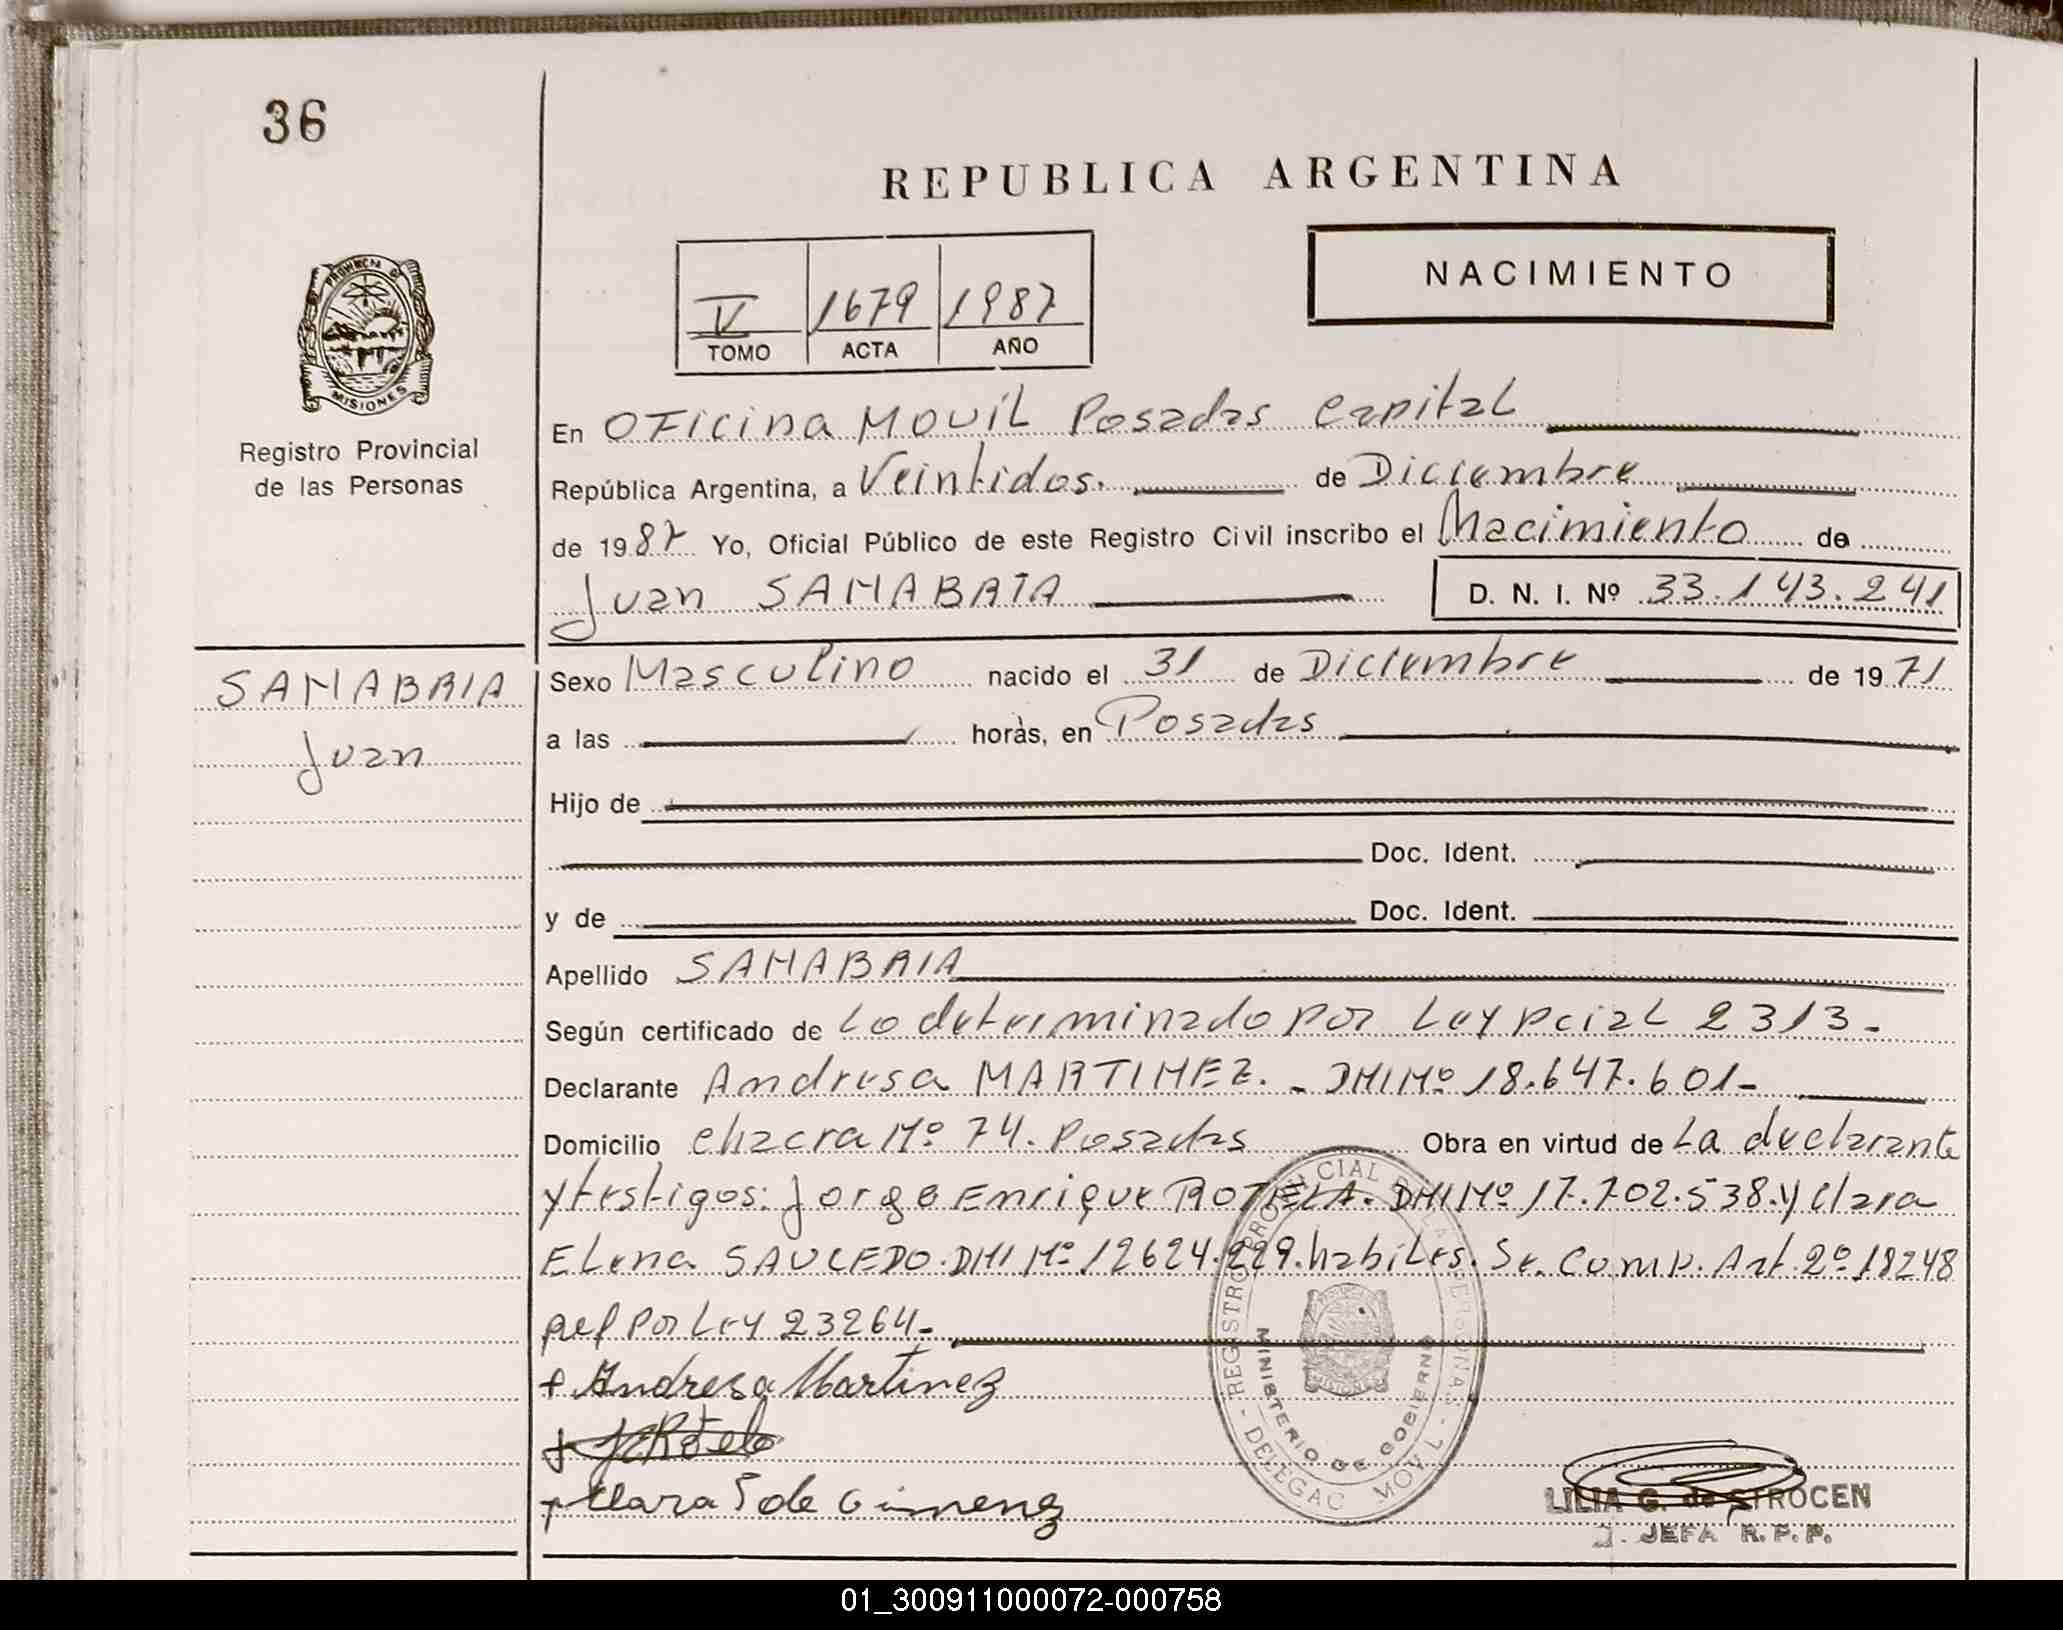 36
REPUBLICA ARGENTINA
NACIMIENTO
V 1679 1987
TOMO ACTA AÑO
PROVINCIA DE
MISIONES
Registro Provincial
de las Personas
En OFicina MOVIL Posadas Capital
República Argentina, a Veintidos. de Diciembre
de 1987 Yo, Oficial Público de este Registro Civil inscribo el Nacimiento de
Juan SANABRIA D. N. I. Nº 33.143.241
SANABRIA
Juan
Sexo Masculino nacido el 31 de Diciembre de 1971
a las horas, en Posadas
Hijo de
Doc. Ident.
y de Doc. Ident.
Apellido SANABRIA
Según certificado de Lo determinado por Ley pcial 2313-
Declarante Andresa MARTINEZ.- DNI Nº 18.647.601-
Domicilio Chacra Nº 74. Posadas Obra en virtud de La declarante
y testigos: Jorge Enrique ROTELA. DNI Nº 17.702.538. y Clara
Elena SAUCEDO. DNI Nº 12624.229. habiles. Se. Comp. Art. 2º 18248
por Ley 23264-
Andresa Martinez
Clara S de Gimenez
REGISTRO PROVINCIAL DE LAS PERSONAS - DELEGAC MOVIL -
MINISTERIO DE GOBIERNO
MISIONES
LILIA G. de STROCEN
JEFA R. P. P.
01_300911000072-000758